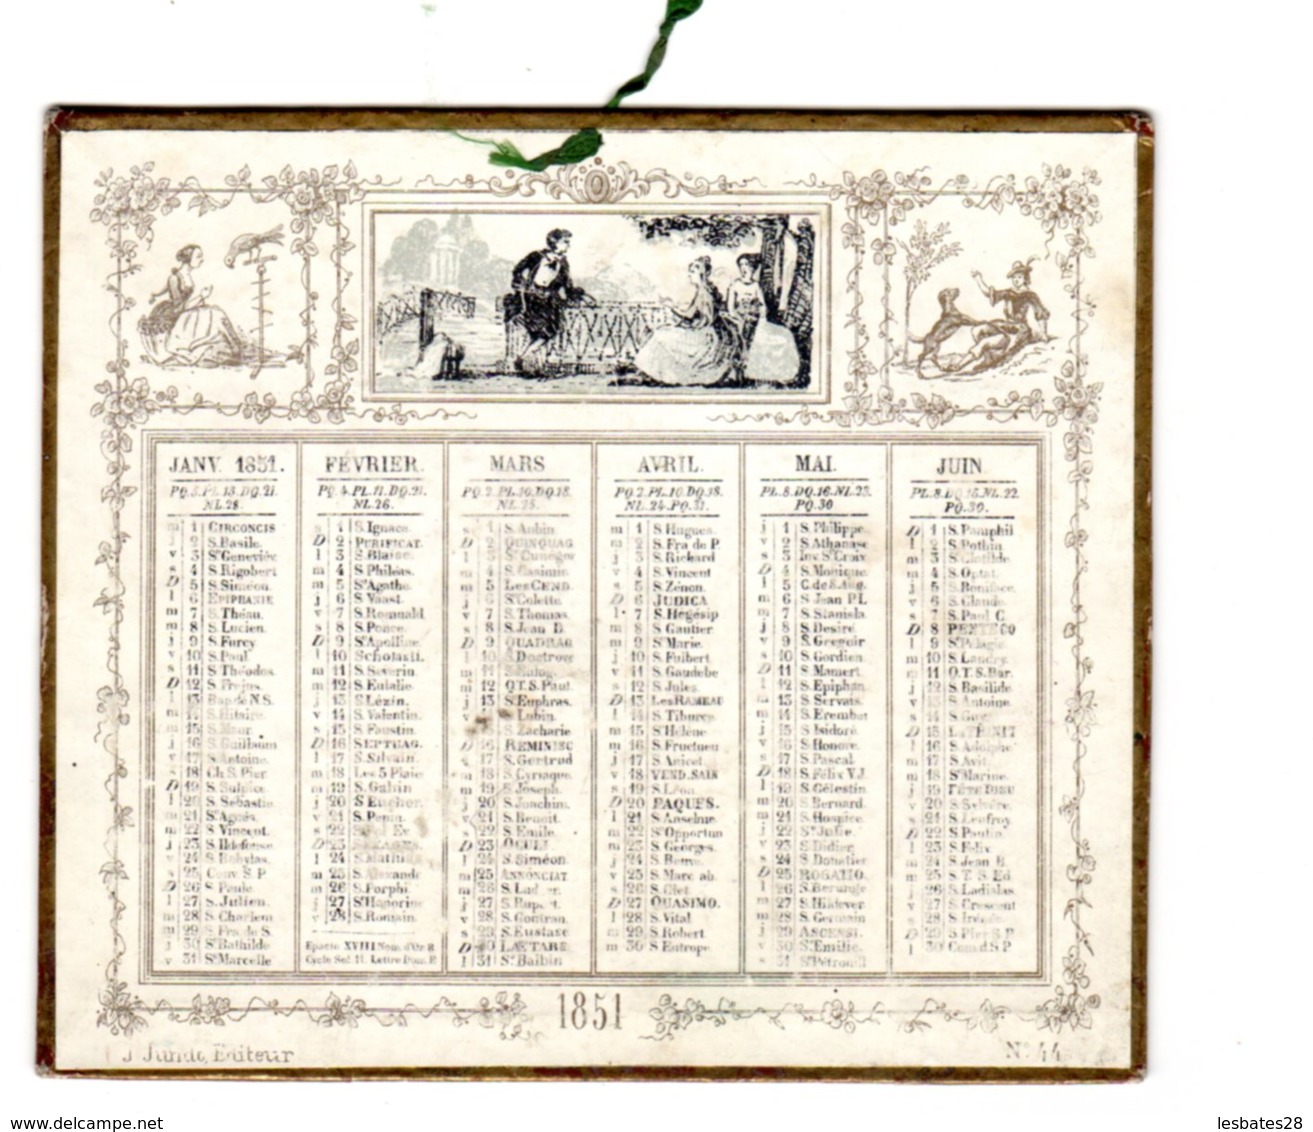 JANV. 1851.
PQ.5.PL.13.DQ.21.
NL.28.
m 1 CIRCONCIS
j 2 S.Basile.
v 3 Ste Geneviév.
s 4 S.Rigobert
D 5 S.Siméon.
l 6 EPIPHANIE
m 7 S.Théau.
m 8 S.Lucien.
j 9 S.Furcy
v 10 S.Paul
s 11 S.Théodos.
D 12 S.Fréjus.
l 13 Bap.de N.S.
m 14 S.Hilaire.
m 15 S.Maur.
j 16 S.Guillaum
v 17 S.Antoine.
s 18 Ch.S.Pier.
D 19 S.Sulpice.
l 20 S.Sébastie.
m 21 Ste Agnès.
m 22 S.Vincent.
j 23 S.Ildefonse.
v 24 S.Babylas.
s 25 Conv.S.P.
D 26 Ste Paule.
l 27 S.Julien.
m 28 S.Charlem
m 29 S.Fra de S.
j 30 Ste Bathilde
v 31 Ste Marcelle
FÉVRIER.
PQ.4.PL.11.DQ.21.
NL.26.
s 1 S.Ignace.
D 2 PURIFICAT.
l 3 S.Blaise.
m 4 S.Philéas.
m 5 Ste Agathe.
j 6 S.Vaast.
v 7 S.Romuald.
s 8 S.Ponce.
D 9 Ste Apolline.
l 10 Scholasti.
m 11 S.Severin.
m 12 Ste Eulalie.
j 13 S.Lézin.
v 14 S.Valentin.
s 15 S.Faustin.
D 16 SEPTUAG.
l 17 S.Silvain.
m 18 Les 5 Plaie
m 19 S.Gabin
j 20 S.Eucher.
v 21 S.Pepin.
s 22
D 23 SEXAGES.
l 24 S.Mathias
m 25 S.Alexandr
m 26 S.Porphi.
j 27 Ste Honorine
v 28 S.Romain.
Epacte XVIII Nom. d'Or 9.
Cycle Sol. 11. Lettre Dom. E.
MARS
PQ.2.PL.10.DQ.18.
NL.25.
s 1 S.Aubin.
D 2 QUINQUAG.
l 3 Ste Cunégon
m 4 S.Casimir.
m 5 Les CEND.
j 6 Ste Colette.
v 7 S.Thomas.
s 8 S.Jean D.
D 9 QUADRAG.
l 10 S.Doctrove
m 11 S.Euloge
m 12 Q.T.S.Paul.
j 13 S.Euphras.
v 14 S.Lubin.
s 15 S.Zacharie
D 16 REMINISC
l 17 S.Gertrud
m 18 S.Cyriaque.
m 19 S.Joseph.
j 20 S.Joachim.
v 21 S.Benoit.
s 22 S.Emile.
D 23 OCULI.
l 24 S.Siméon.
m 25 ANNONCIAT.
m 26 S.Ludger.
j 27 S.Rupert.
v 28 S.Gontran.
s 29 S.Eustase
D 30 LAETARE.
l 31 Ste Balbin
AVRIL.
PQ.2.PL.10.DQ.18.
NL.24.PQ.31.
m 1 S.Hugues.
m 2 S.Fra de P.
j 3 S.Richard
v 4 S.Vincent
s 5 S.Zénon.
D 6 JUDICA
l 7 S.Hégésip
m 8 S.Gautier
m 9 Ste Marie.
j 10 S.Fulbert
v 11 S.Gaudebe
s 12 S.Jules.
D 13 Les RAMEAU
l 14 S.Tiburce
m 15 Ste Hélène
m 16 S.Fructueu
j 17 S.Anicet.
v 18 VEND.SAIN
s 19 S.Léon.
D 20 PAQUES.
l 21 S.Anselme.
m 22 Ste Opportun
m 23 S.Georges.
j 24 S.Beuve.
v 25 S.Marc ab.
s 26 S.Clet
D 27 QUASIMO.
l 28 S.Vital
m 29 S.Robert
m 30 S.Eutrope
MAI.
PL.8.DQ.16.NL.23.
PQ.30
j 1 S.Philippe.
v 2 S.Athanase
s 3 Inv.Ste Croix.
D 4 Ste Monique.
l 5 C.de S.Aug.
m 6 S.Jean P.L
m 7 S.Stanisla.
j 8 S.Désiré
v 9 S.Grégoir
s 10 S.Gordien.
D 11 S.Mamert.
l 12 S.Epiphan.
m 13 S.Servais.
m 14 S.Erembet
j 15 S.Isidore.
v 16 S.Honore.
s 17 S.Pascal.
D 18 S.Félix V.J.
l 19 S.Célestin.
m 20 S.Bernard.
m 21 S.Hospice
j 22 Ste Julie.
v 23 S.Didier.
s 24 S.Donatier
D 25 ROGATIO.
l 26 S.Béranger
m 27 S.Hildever
m 28 S.Germain
j 29 ASCENSI.
v 30 S.Emilie.
s 31 Ste Pétronil
JUIN
PL.8.DQ.15.NL.22.
PQ.30.
D 1 S.Pamphil
l 2 S.Pothin.
m 3 Ste Clotilde.
m 4 S.Optat.
j 5 S.Boniface.
v 6 S.Claude.
s 7 S.Paul C.
D 8 PENTECO
l 9 Ste Pélagie.
m 10 S.Landry.
m 11 Q.T.S.Bar.
j 12 S.Basilide
v 13 S.Antoine
s 14 S.Guy
D 15 La TRINIT
l 16 S.Adolphe.
m 17 S.Avit.
m 18 Ste Marine.
j 19 FÊTE DIEU
v 20 S.Sylvère.
s 21 S.Leufroy.
D 22 S.Paulin.
l 23 S.Félix.
m 24 S.Jean B.
m 25 S.T.S.Ed.
j 26 S.Ladislas.
v 27 S.Crescent
s 28 S.Irénée.
D 29 S.Pier S.P.
l 30 Com.d.S.P.
1851
J Jundt, Editeur
No.44
www.delcampe.net
lesbates28